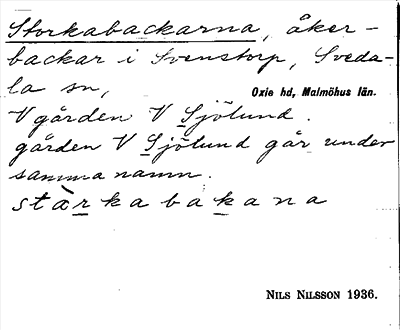 Storkabackarna, åker-
backar i Svenstorp, Sveda-
la sn,
Oxie hd, Malmöhus län.
V gården V Sjölund.
gården V Sjölund går under
samma namn.
stàrkabakana
NILS NILSSON 1936.